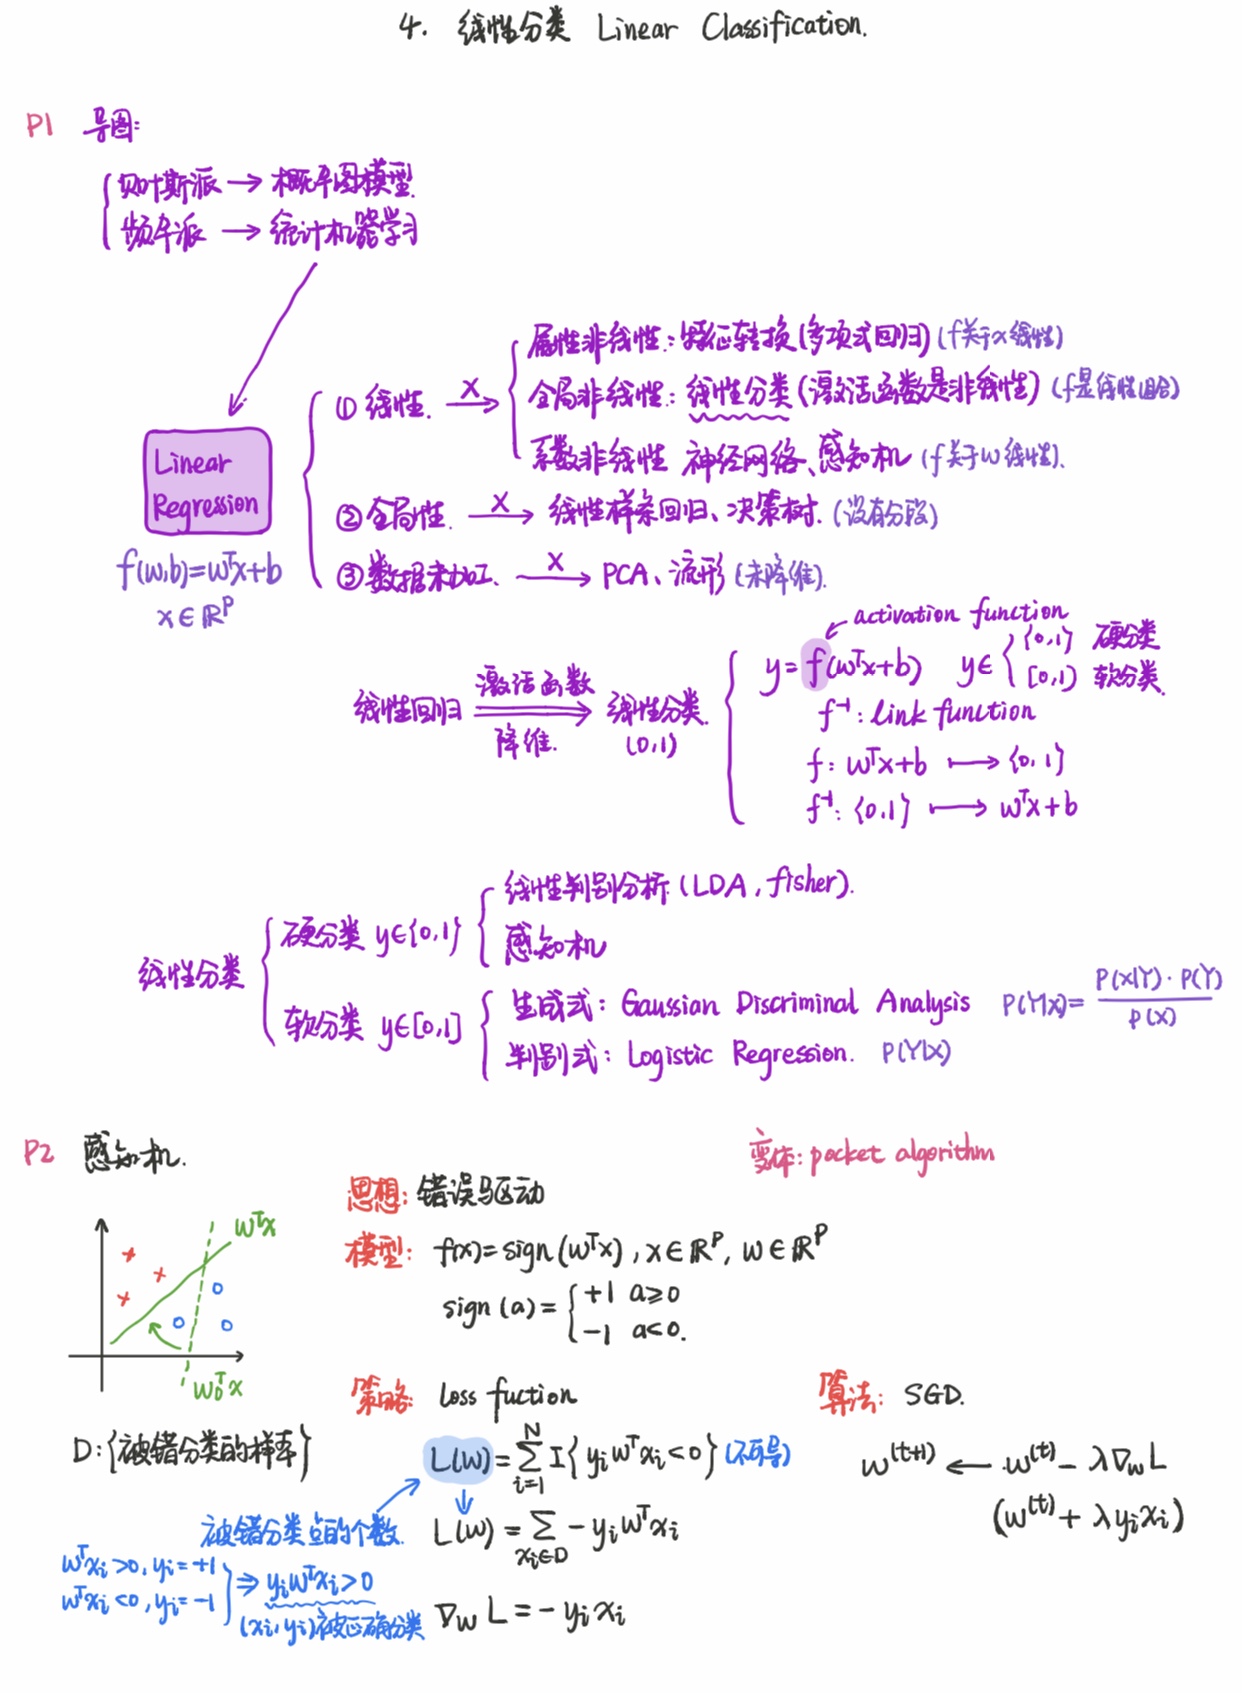 4. 线性分类 Linear Classification.
P1 导图:
贝叶斯派 → 概率图模型.
频率派 → 统计机器学习
Linear
Regression
f(w,b)=wᵀx+b
x∈ℝᵖ
① 线性. —X→
属性非线性:特征转换(多项式回归)(f关于x线性)
全局非线性:线性分类(激活函数是非线性)(f是线性组合)
系数非线性 神经网络、感知机(f关于w线性).
② 全局性. —X→ 线性样条回归、决策树.(没有分段)
③ 数据未加工. —X→ PCA、流形(未降维).
线性回归 激活函数 ⇒ 降维. 线性分类.
(0,1)
activation function
y=f(wᵀx+b) y∈ {0,1} 硬分类
[0,1) 软分类.
f⁻¹: link function
f: wᵀx+b ↦ {0,1}
f⁻¹: {0,1} ↦ wᵀx+b
线性分类
硬分类 y∈{0,1}
线性判别分析.(LDA,fisher).
感知机
软分类 y∈[0,1]
生成式: Gaussian Discriminal Analysis P(Y|x)= P(x|Y)·P(Y) / P(x)
判别式: Logistic Regression. P(Y|x)
P2 感知机.
变体: pocket algorithm
思想: 错误驱动
模型: f(x)=sign(wᵀx), x∈ℝᵖ, w∈ℝᵖ
sign(a)= { +1 a≥0
−1 a<0.
wᵀx
w₀ᵀx
策略: Loss fuction
算法: SGD.
D:{被错分类的样率}
L(w)=∑ᵢ₌₁ᴺ I{yᵢwᵀxᵢ<0}(不可导)
w⁽ᵗ⁺¹⁾ ← w⁽ᵗ⁾− λ∇wL
(w⁽ᵗ⁾+ λyᵢxᵢ)
被错分类点的个数.
L(w)=∑_{xᵢ∈D} −yᵢwᵀxᵢ
wᵀxᵢ>0, yᵢ=+1
wᵀxᵢ<0, yᵢ=−1
⇒ yᵢwᵀxᵢ>0
(xᵢ,yᵢ)被正确分类
∇wL=−yᵢxᵢ